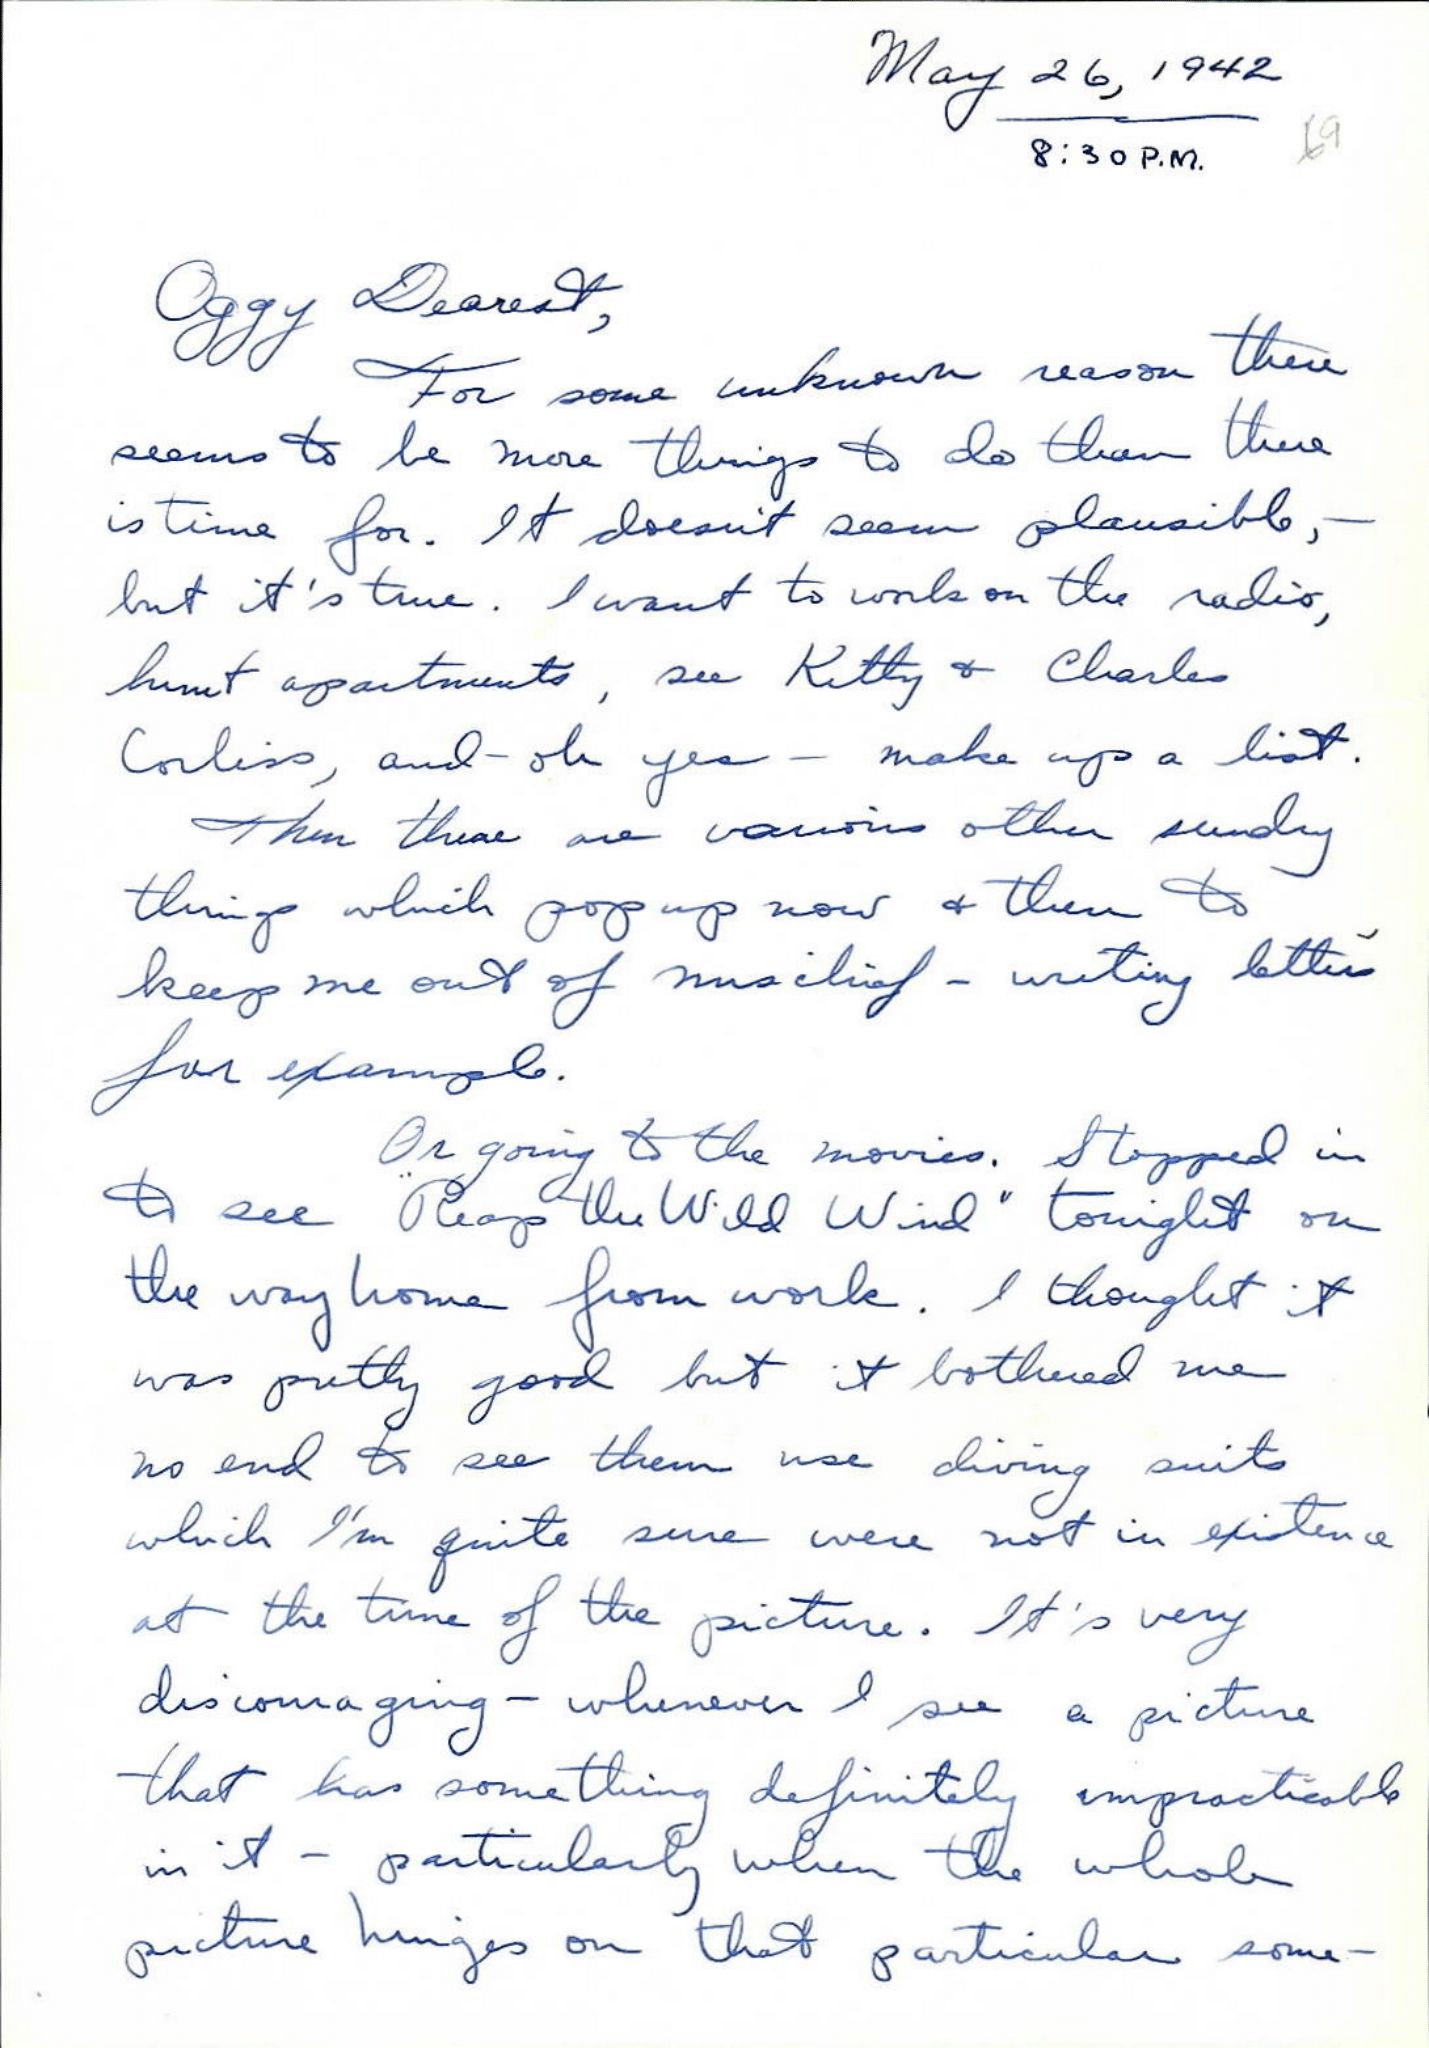 May 26, 1942
8:30 P.M.
69
Oggy Dearest,
For some unknown reason there
seems to be more things to do than there
is time for. It doesn't seem plausible, –
but it's true. I want to work on the radio,
hunt apartments, see Kitty & Charles
Corliss, and – oh yes – make up a list.
Then there are various other sundry
things which pop up now & then to
keep me out of mischief – writing letters
for example.
Or going to the movies. Stopped in
to see "Reap the Wild Wind" tonight on
the way home from work. I thought it
was pretty good but it bothered me
no end to see them use diving suits
which I'm quite sure were not in existence
at the time of the picture. It's very
discouraging – whenever I see a picture
that has something definitely impracticable
in it – particularly when the whole
picture hinges on that particular some–